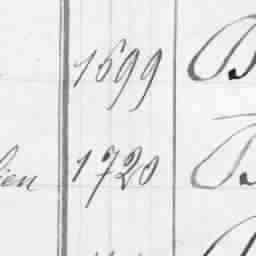 1699 B
ien 1720 B